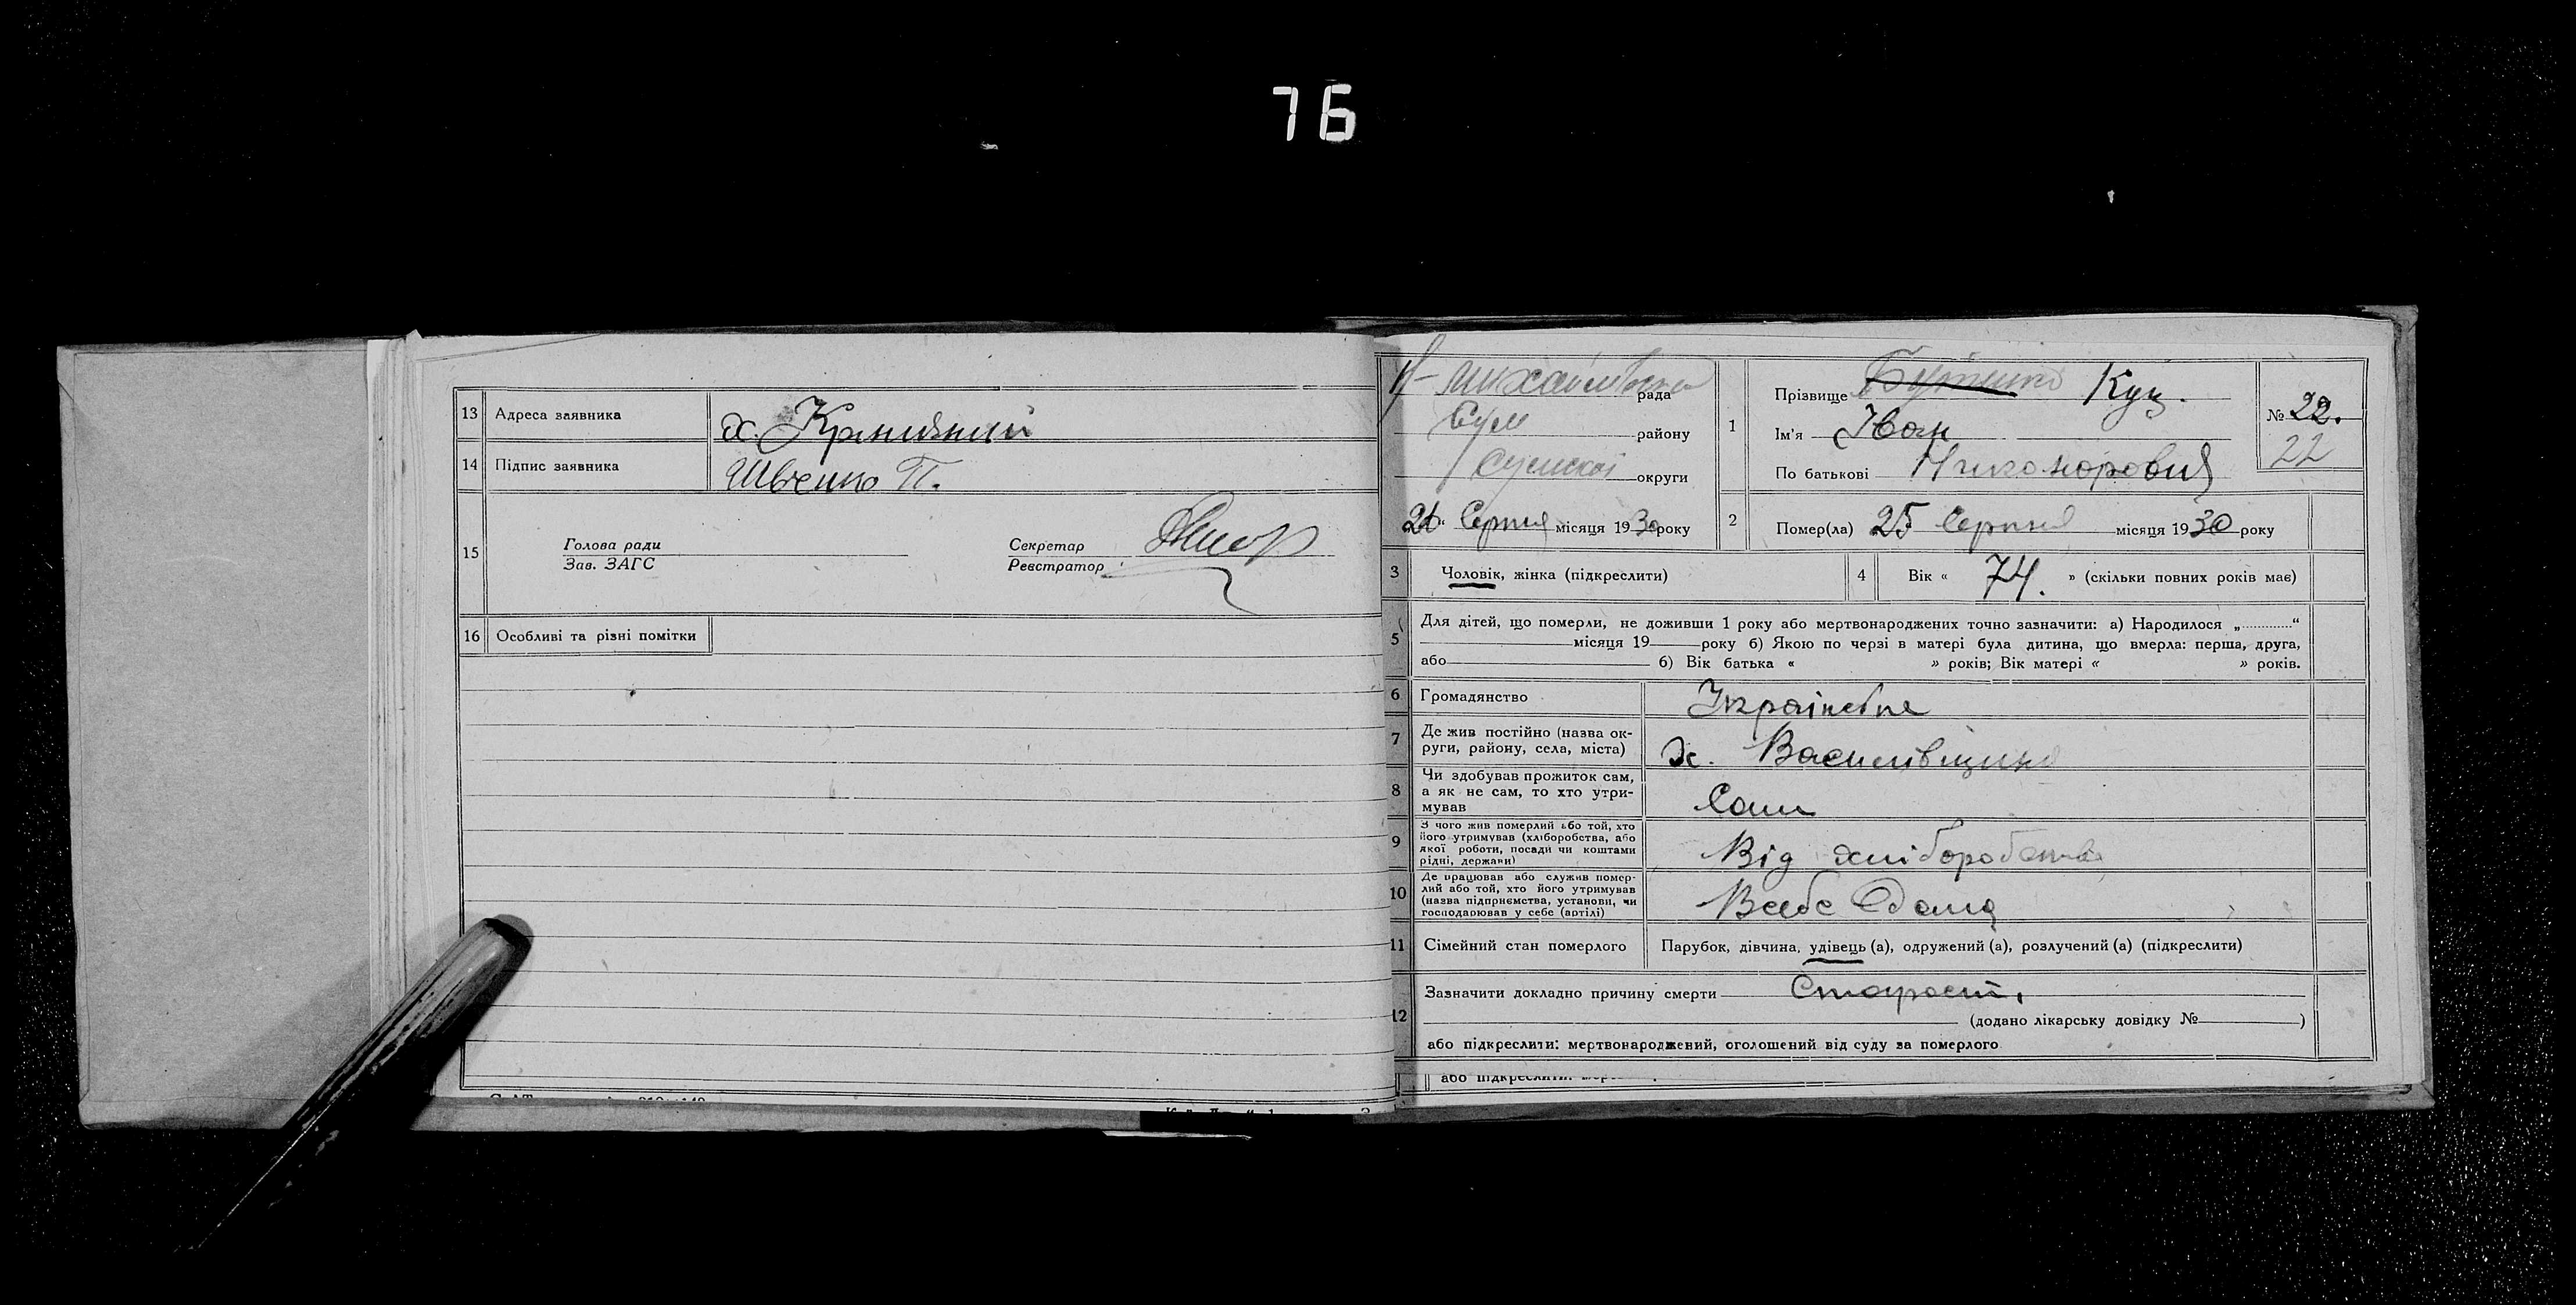 76
13 Адреса заявника х. Кранивний
14 Підпис заявника Швченко П.
15
Голова ради
Зав. ЗАГС
Секретар
Реєстратор
16 Особливі та різні помітки
рада
Сум району
Сумської округи
Серпня місяця 1930 року
1 Прізвище Куц.
Ім'я Іван
По батькові Никанорович
№ 22.
22
2 Помер(ла) 25 Серпня місяця 1930 року
3 Чоловік, жінка (підкреслити)
4 Вік « 74. » (скільки повних років має)
5 Для дітей, що померли, не доживши 1 року або мертвонароджених точно зазначити: а) Народилося „ “
місяця 19 року б) Якою по черзі в матері була дитина, що вмерла: перша, друга,
або б) Вік батька « » років; Вік матері « » років.
6 Громадянство
7 Де жив постійно (назва ок-
руги, району, села, міста) х. Василівщина
8 Чи здобував прожиток сам,
а як не сам, то хто утри-
мував Сам
9 З чого жив померлий або той, хто
його утримував (хліборобства, або
якої роботи, посади чи коштами
рідні, держави) Від хліборобства
10 Де працював або служив помер-
лий або той, хто його утримував
(назва підприємства, установи, чи
господарював у себе (артілі) Всебе Дома
11 Сімейний стан померлого Парубок, дівчина, удівець (а), одружений (а), розлучений (а) (підкреслити)
12 Зазначити докладно причину смерти Старость
(додано лікарську довідку № )
або підкреслити: мертвонароджений, оголошений від суду за померлого
або підкреслити: